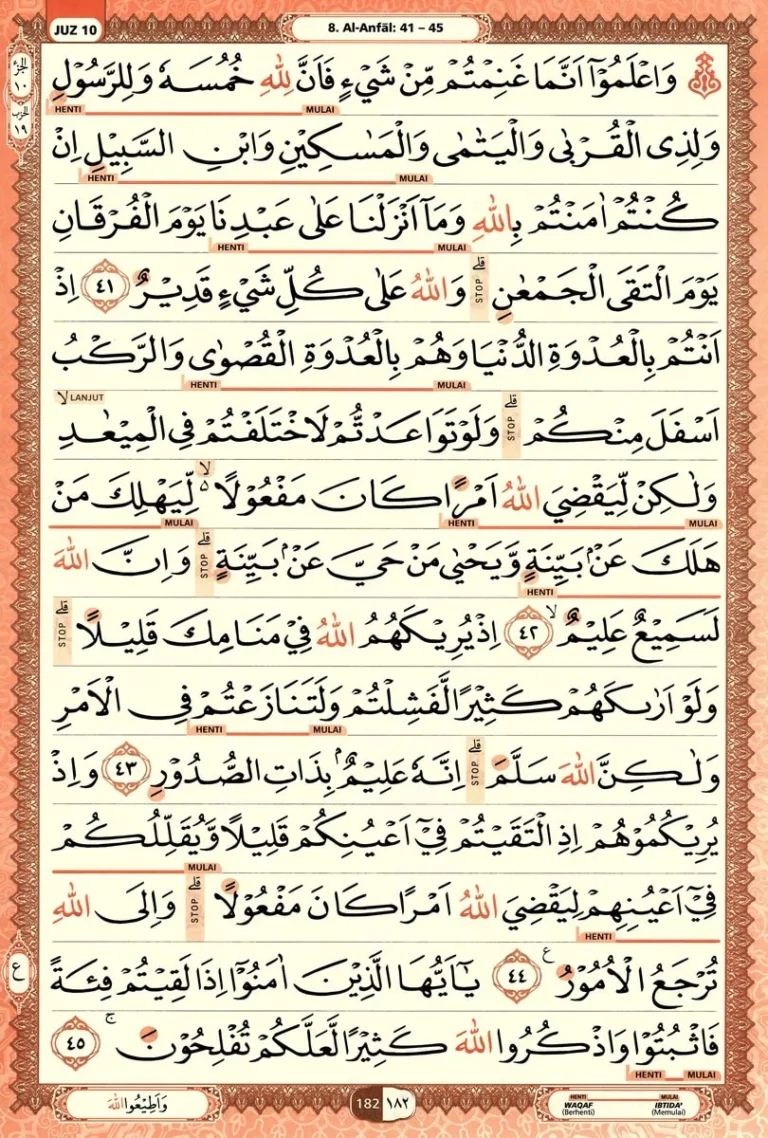 JUZ 10
8. Al-Anfāl: 41 – 45
الجزء ١٠
الحزب ١٩
وَاعْلَمُوْٓا اَنَّمَا غَنِمْتُمْ مِّنْ شَيْءٍ فَاَنَّ لِلّٰهِ خُمُسَهٗ وَلِلرَّسُوْلِ
HENTI MULAI
وَلِذِى الْقُرْبٰى وَالْيَتٰمٰى وَالْمَسٰكِيْنِ وَابْنِ السَّبِيْلِ اِنْ
HENTI MULAI
كُنْتُمْ اٰمَنْتُمْ بِاللّٰهِ وَمَآ اَنْزَلْنَا عَلٰى عَبْدِنَا يَوْمَ الْفُرْقَانِ
HENTI MULAI
يَوْمَ الْتَقَى الْجَمْعٰنِۗ STOP وَاللّٰهُ عَلٰى كُلِّ شَيْءٍ قَدِيْرٌ ٤١ اِذْ
اَنْتُمْ بِالْعُدْوَةِ الدُّنْيَا وَهُمْ بِالْعُدْوَةِ الْقُصْوٰى وَالرَّكْبُ
HENTI MULAI
LANJUT
اَسْفَلَ مِنْكُمْۗ STOP وَلَوْ تَوَاعَدْتُّمْ لَاخْتَلَفْتُمْ فِى الْمِيْعٰدِۙ
وَلٰكِنْ لِّيَقْضِيَ اللّٰهُ اَمْرًا كَانَ مَفْعُوْلًا ەۙ لِّيَهْلِكَ مَنْ
MULAI HENTI MULAI
هَلَكَ عَنْۢ بَيِّنَةٍ وَّيَحْيٰى مَنْ حَيَّ عَنْۢ بَيِّنَةٍۗ STOP وَاِنَّ اللّٰهَ
HENTI
لَسَمِيْعٌ عَلِيْمٌۙ ٤٢ اِذْ يُرِيْكَهُمُ اللّٰهُ فِيْ مَنَامِكَ قَلِيْلًاۗ STOP
وَلَوْ اَرٰىكَهُمْ كَثِيْرًا لَّفَشِلْتُمْ وَلَتَنَازَعْتُمْ فِى الْاَمْرِ
HENTI MULAI
وَلٰكِنَّ اللّٰهَ سَلَّمَۗ STOP اِنَّهٗ عَلِيْمٌۢ بِذَاتِ الصُّدُوْرِ ٤٣ وَاِذْ
يُرِيْكُمُوْهُمْ اِذِ الْتَقَيْتُمْ فِيْٓ اَعْيُنِكُمْ قَلِيْلًا وَّيُقَلِّلُكُمْ
MULAI
فِيْٓ اَعْيُنِهِمْ لِيَقْضِيَ اللّٰهُ اَمْرًا كَانَ مَفْعُوْلًاۗ STOP وَاِلَى اللّٰهِ
HENTI
تُرْجَعُ الْاُمُوْرُ ࣖ ٤٤ يٰٓاَيُّهَا الَّذِيْنَ اٰمَنُوْٓا اِذَا لَقِيْتُمْ فِئَةً
ع
فَاثْبُتُوْا وَاذْكُرُوا اللّٰهَ كَثِيْرًا لَّعَلَّكُمْ تُفْلِحُوْنَۚ ٤٥
HENTI MULAI
وَاَطِيْعُوا اللّٰهَ
182 ١٨٢
HENTI WAQAF (Berhenti)
MULAI IBTIDA' (Memulai)